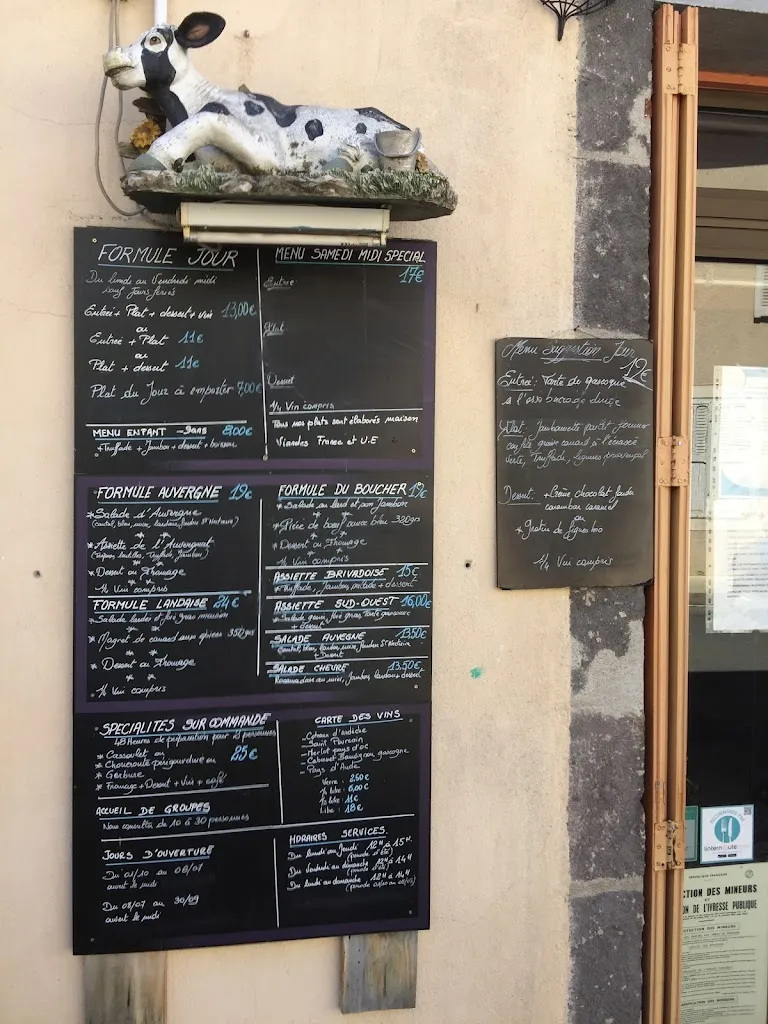 FORMULE JOUR
Du lundi au Vendredi midi
sauf Jours fériés
Entrée + Plat + dessert + vin 13,00€
ou
Entrée + Plat 11€
ou
Plat + dessert 11€
Plat du Jour à emporter 7,00€
MENU ENFANT -9ans 8,00€
+ Truffade + Jambon + dessert + boisson
MENU SAMEDI MIDI SPECIAL
17€
Entrée
Plat
Dessert
1/4 Vin compris
Tous nos plats sont élaborés maison
Viandes France et U.E
FORMULE AUVERGNE 19€
*Salade d'Auvergne
* *
*Assiette de l'Auvergnat
* *
*Dessert ou Fromage
* *
1/4 Vin compris
FORMULE LANDAISE 24€
*Salade
* *
*Magret de canard aux épices 350grs
* *
* Dessert ou Fromage
* *
1/4 Vin compris
FORMULE DU BOUCHER 19€
*Salade au lard et son Jambon
* *
*Pièce de boeuf sauce bleu 320grs
* *
*Dessert ou Fromage
* *
1/4 Vin compris
ASSIETTE BRIVADOISE 15€
*Truffade, Jambon, salade + dessert
ASSIETTE SUD-OUEST 16,00€
+ dessert
SALADE AUVEGNE 13,50€
+ Dessert
SALADE CHEVRE 13,50€
SPECIALITÉS SUR COMMANDE
48 Heures de préparation pour 2 personnes
* Cassoulet ou 25€
* Choucroute périgourdine ou
* Garbure
* Fromage + Dessert + Vin + café
ACCUEIL DE GROUPES
Nous consulter de 10 à 30 personnes
CARTE DES VINS
- Coteaux d'ardèche
- Saint Pourcain
- Merlot pays d'oc
- Cabernet Sauvignon gascogne
- Pays d'Aude
Verre : 2,50€
1/4 litre : 6,00€
1/2 litre : 11€
Litre : 18€
JOURS D'OUVERTURE
Du 01/10 au 06/07
ouvert le midi
Du 08/07 au 30/09
ouvert le midi
HORAIRES SERVICES.
Du lundi au Jeudi 12H à 15H.
(période d'été)
Du Vendredi au dimanche 12H à 14H
(période d'été)
Du lundi au dimanche 12H à 14H
Menu Suggestion Jour
19€
Entrée: Tarte du gascogne
Plat:
verte, Truffade, légumes provençal
Dessert: + Crème chocolat
caramba caramel
ou
1/4 Vin compris
RECOMMANDÉ PAR
linternaute.com
RÉPUBLIQUE FRANÇAISE
CTION DES MINEURS
ET
ON DE L'IVRESSE PUBLIQUE
PROTECTION DES MINEURS